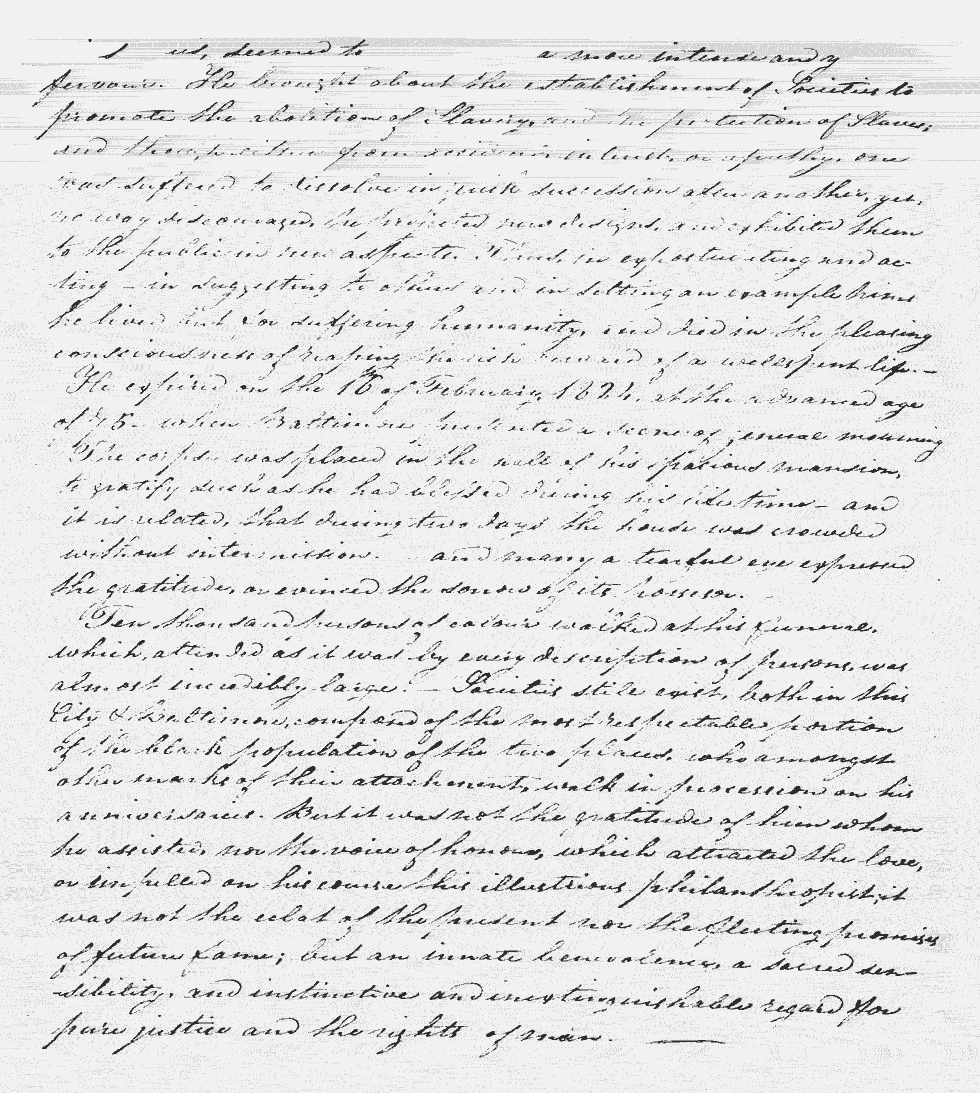 us, seemed to a more intense and
fervour. He brought about the establishment of Societies to
promote the abolition of Slavery, and the protection of Slaves;
and though either from interest, or apathy, one
was suffered to dissolve in quick succession after another, yet,
no way discouraged, he projected new designs, and exhibited them
to the public in new aspects. Thus, in expostulating and ac-
ting – in suggesting to others and in setting an example hims
he lived but for suffering humanity, and died in the pleasing
consciousness of reaping the rich reward of a wellspent life. —
He expired on the 16th of February, 1824, at the advanced age
of 75. when Baltimore presented a scene of general mourning
The corpse was placed in the hall of his spacious mansion,
to gratify such as he had blessed during his life time – and
it is related, that during two days the house was crowded
without intermission. and many a tearful eye expressed
the gratitude, or evinced the sorrow of its possessor.
Ten thousand persons of colour walked at his funeral,
which, attended as it was by every description of persons, was
almost incredibly large! – Societies still exist, both in this
City & Baltimore, composed of the most respectable portion
of the black population of the two places, who amongst
other marks of their attachment, walk in procession on his
anniversaries. But it was not the gratitude of him whom
he assisted, nor the voice of honour, which attracted the love,
or impelled on his course this illustrious philanthropist; it
was not the eclat of the present nor the fleeting promises
of future fame; but an innate benevolence, a sacred sen-
sibility, and instinctive and inextinguishable regard for
pure justice and the rights of man. —